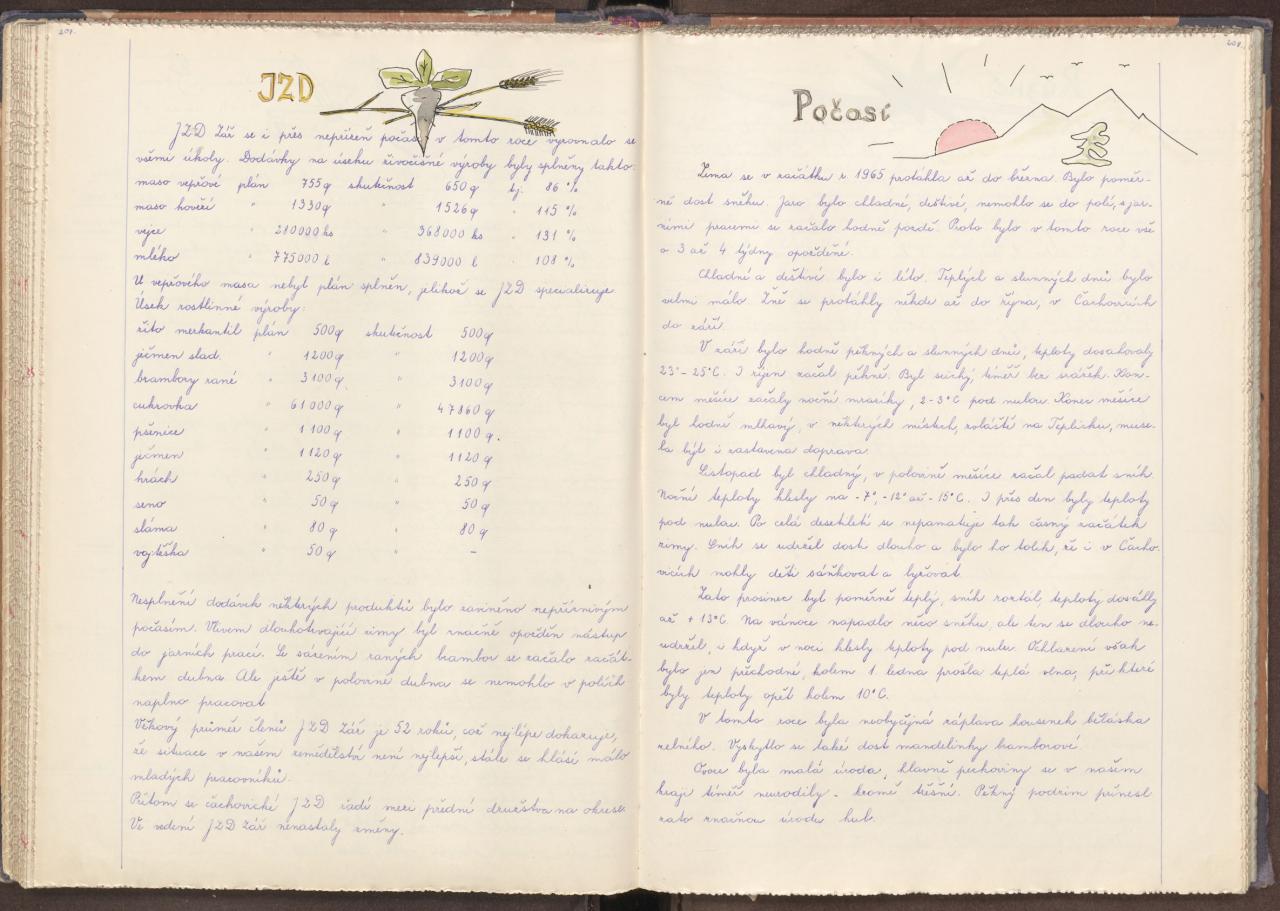 207.
JZD
JZD Zář se i přes nepřízeň počasí v tomto roce vyrovnalo se
všemi úkoly. Dodávky na úseku živočišné výroby byly splněny takto:
maso vepřové plán 755q skutečnost 650q tj. 86 %
maso hovězí " 1330q " 1526q " 115 %
vejce " 280000 ks " 368000 ks " 131 %
mléko " 775000 l " 839000 l " 108 %
U vepřového masa nebyl plán splněn, jelikož se JZD specializuje
Úsek rostlinné výroby:
žito merkantil plán 500q skutečnost 500q
ječmen slad. " 1200q " 1200q
brambory rané " 3100q " 3100q
cukrovka " 61000q " 47860q
pšenice " 1100q " 1100q.
ječmen " 1120q " 1120q
hrách " 250q " 250q
seno " 50q " 50q
sláma " 80q " 80q
vojtěška " 50q " –
Nesplnění dodávek některých produktů bylo zaviněno nepříznivým
počasím. Vlivem dlouhotrvající zimy byl značně opožděn nástup
do jarních prací. Se sázením raných brambor se začalo začát-
kem dubna. Ale ještě v polovině dubna se nemohlo v polích
naplno pracovat
Věkový průměr členů JZD Zář je 52 roků, což nejlépe dokazuje,
že situace v našem zemědělství není nejlepší, stále se hlásí málo
mladých pracovníků.
Přitom se čachovické JZD řadí mezi přední družstva na okrese.
Ve vedení JZD Zář nenastaly změny.
208.
Počasí
Zima se v začátku r. 1965 protáhla až do března. Bylo poměr-
ně dost sněhu. Jaro bylo chladné, deštivé, nemohlo se do polí, s jar-
ními pracemi se začalo hodně pozdě. Proto bylo v tomto roce vše
o 3 až 4 týdny opožděné.
Chladné a deštivé bylo i léto. Teplých a slunných dnů bylo
velmi málo. Žně se protáhly někde až do října, v Čachovicích
do září.
V září bylo hodně pěkných a slunných dnů, teploty dosahovaly
23°–25°C. I říjen začal pěkně. Byl suchý, téměř bez srážek. Kon-
cem měsíce začaly noční mrazíky, 2-3°C pod nulou. Konec měsíce
byl hodně mlhavý, v některých místech, zvláště na Teplicku, muse-
la být i zastavena doprava.
Listopad byl chladný, v polovině měsíce začal padat sníh.
Noční teploty klesly na -7°, -12° až -15°C. I přes den byly teploty
pod nulou. Po celá desetiletí se nepamatuje tak časný začátek
zimy. Sníh se udržel dost dlouho a bylo ho tolik, že i v Čacho-
vicích mohly děti sáňkovat a lyžovat.
Zato prosinec byl poměrně teplý, sníh roztál, teploty dosáhly
až + 13°C. Na vánoce napadlo něco sněhu, ale ten se dlouho ne-
udržel, i když v noci klesly teploty pod nulu. Ochlazení však
bylo jen přechodné, kolem 1. ledna prošla teplá vlna, při které
byly teploty opět kolem 10°C.
V tomto roce byla neobyčejná záplava housenek běláska
zelného. Vyskytlo se také dost mandelinky bramborové.
Ovoce byla malá úroda, hlavně peckoviny se v našem
kraji téměř neurodily - kromě třešní. Pěkný podzim přinesl
zato značnou úrodu hub.